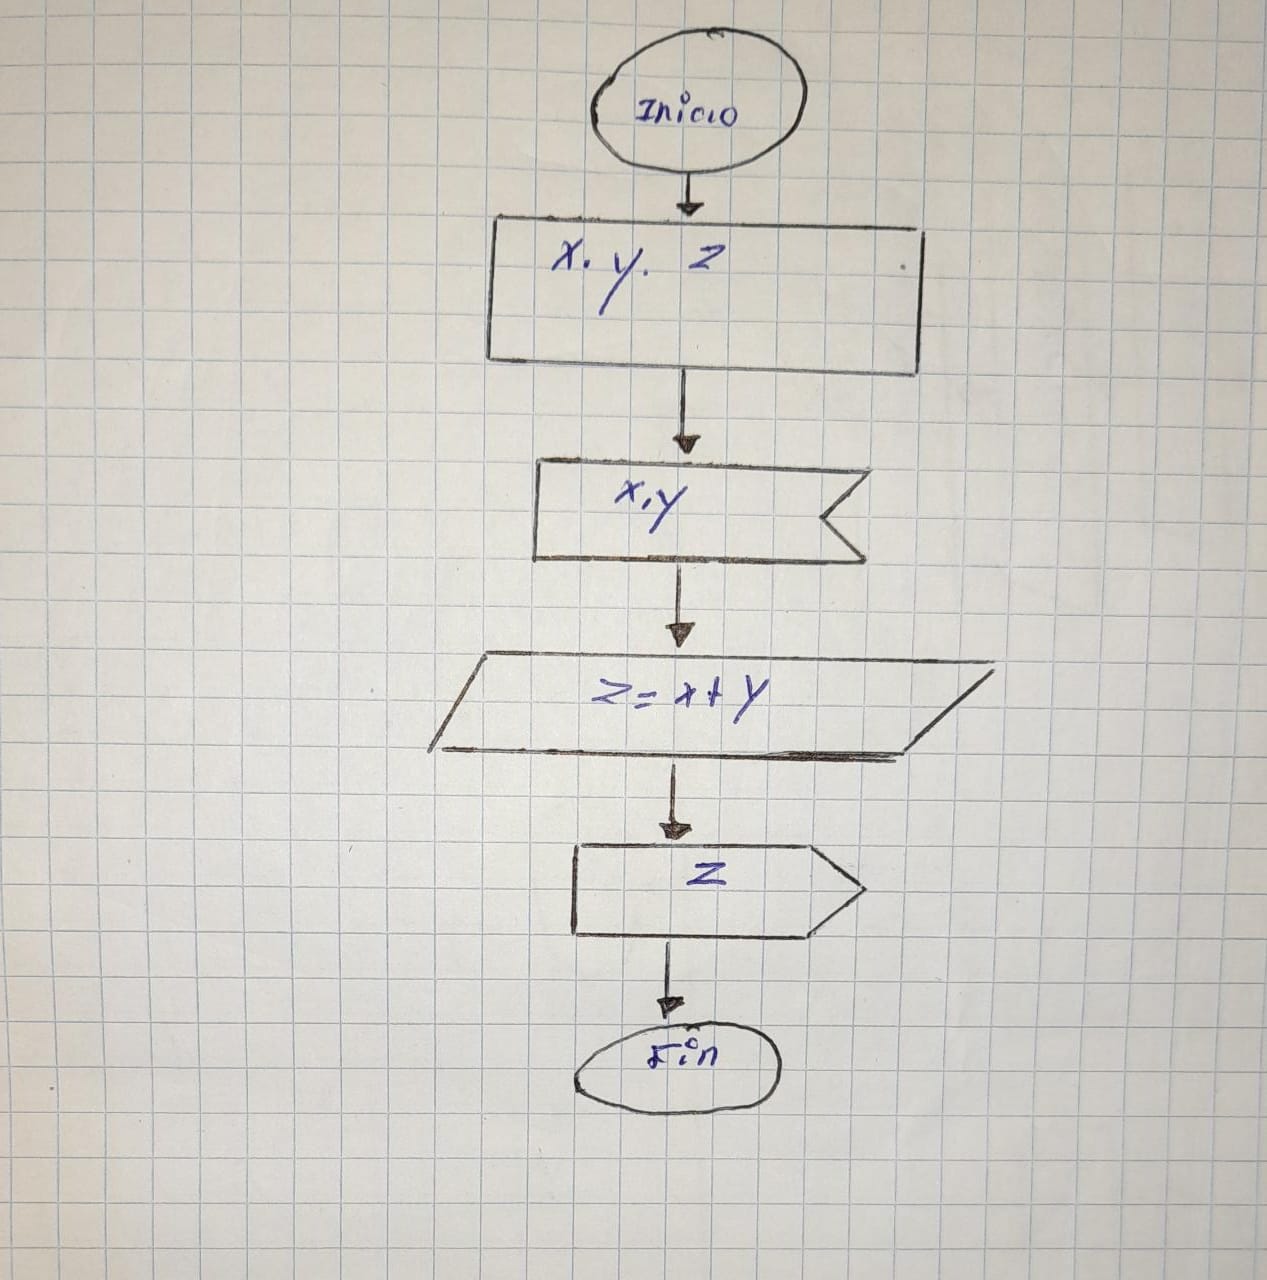 Inicio
x. y. z
x,y
z=x+y
z
Fin